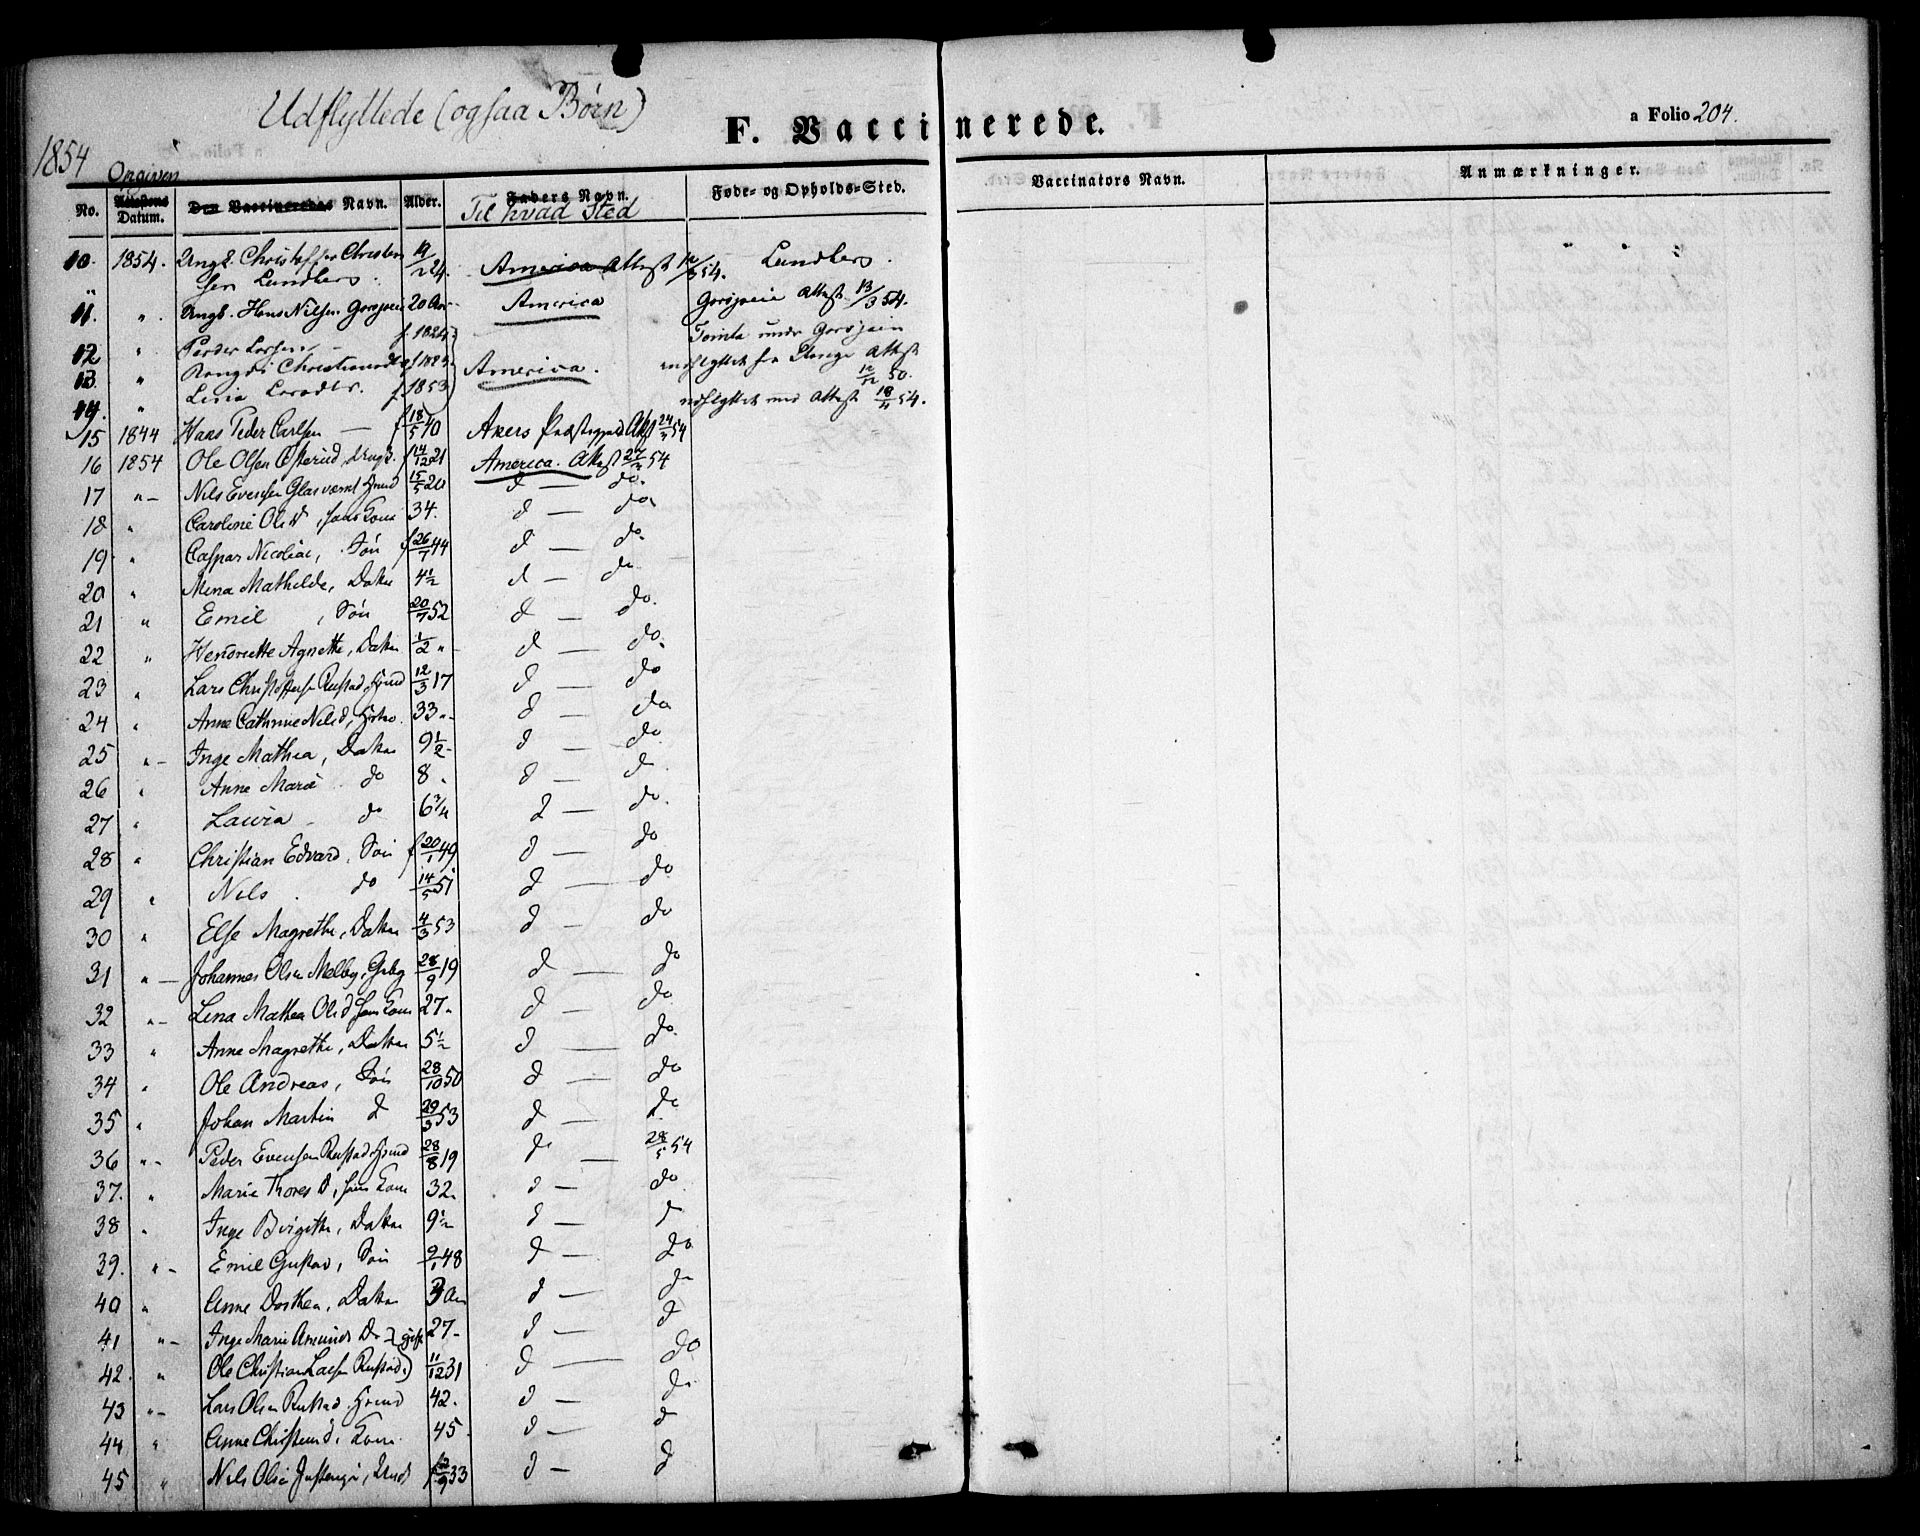 Udflyttede (ogsaa Børn)
F. Vaccinerede.
a Folio 204.
1854
Opgiven
No. Attestens Datum. Den Vaccineredes Navn. Alder. Faders Navn. Føde- og Opholds-Sted. Vaccinators Navn. Anmærkninger.
Til hvad Sted
10. 1854. Ungk. Christoffer Christen
sen Lundberg. 24. America Attest 54. Lundberg.
11. " Ungk. Hans Nilsen 20 Aar America Attest 13/3 54.
12 " Peder Larsen f. 1824 under
13. " Christiansd f. 1823 America. indflyttet fra Stange Attest
12/12 50.
14. " Larsdtr. f 1853 indflyttet med Attest 18/4 54.
15 1844 Hans Peder Carlsen — f 18/5 40 Akers 24/3 54
16 1854 Ole Olsen f 14/12 21 America. Attest 27/3 54
17 "— Nils Evensen 15/5 20 d — do.
18 " Caroline Ols D, hans Kone 34. d — do
19 " Caspar Nicolai, Søn f 26/7 44 d — do
20 " Mina Mathilde, Datter 4½ d — do
21 " Emil, Søn 20/7 52 d — do.
22 " Henriette Agnethe, Datter 1/2 " d — do.
23 " Lars Christoffersen Rustad, 12/3 17 d — do
24 " Anne Cathrine Nilsd, 33 "- d — do
25 "— Inge Mathea, Datter 9½ d — do
26 " Anne Marie do 8 " d — d
27 " Laura do 6¾ d — do.
28 " Christian Edvard, Søn f 20/1 49 d — do
29 " Nils. do 14/5 51 d — do
30 " Else Magrethe, Datter 4/3 53 d — do
31 "— Johannes Olsen Melby, 28/9 19 d — do
32 "— Lina Mathea Olsd hans Kone 27 " d — do
33 " Anne Magrethe, Datter 5½ d — do.
34 " Ole Andreas, Søn 28/10 50 d — do
35 " Johan Martin d 29/3 53 d — do
36 "- Peder Evensen Rustad 28/8 19 do — 28/5 54
37. " Marie Thores D, hans Kone 32 " d — do
38 " Inge Birgithe, Datter 9½ d — d
39. "- Emil Gustav, Søn 2/1 48 d — do
40 " Anne Dorthea, Datter 3 Aar d — do
41 "- Inge Marie Amunds D 27- d — d
42. " Ole Christian Larsen Rustad 11/12 31 d — do
43 "- Lars Olsen Rustad 42. d — do
44 " Anne Christensd, Kone. 45 d — d
45 " Nils Olsen 33 d — d